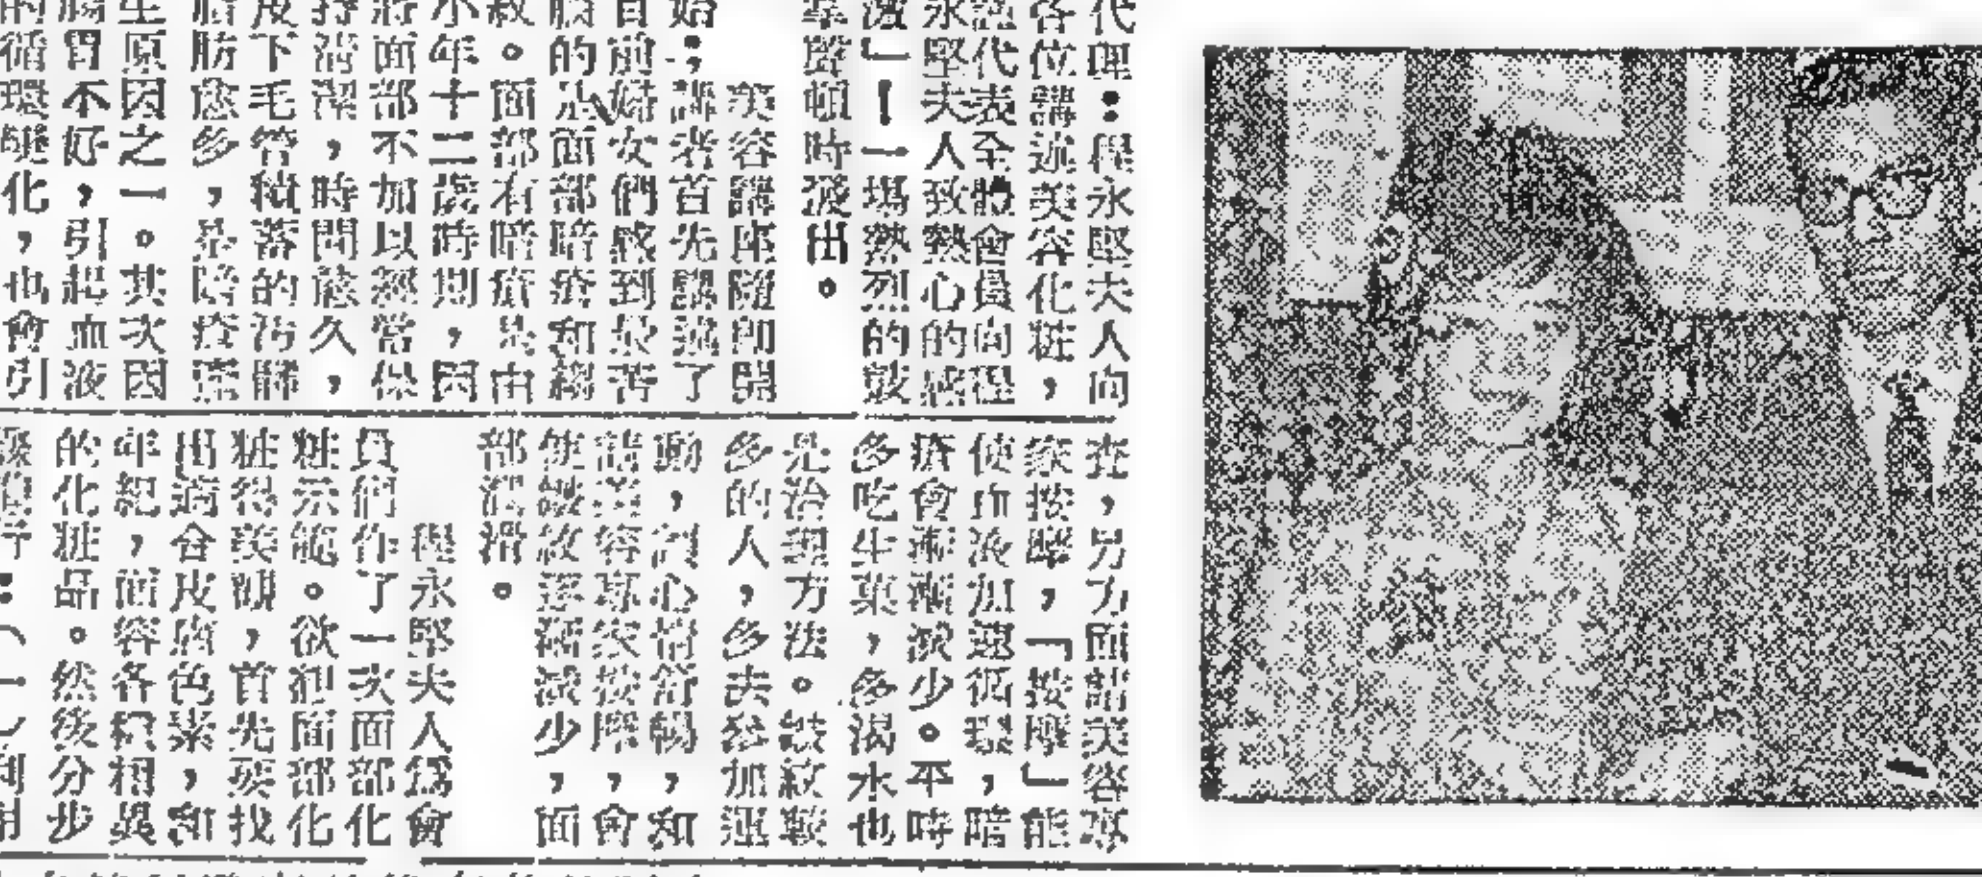 代理：程永堅夫人向
各位講述美容化粧，
謹代表全體會員向程
永堅夫人致熱心的感
激」！一場熱烈的鼓
掌聲頓時浸出。
美容講座隨即開
始；講者首先講述了
目前婦女們感到最苦
惱的是面部暗瘡和縐
紋。面部有暗瘡是由
小年十二歲時則，因
將面部不加以經常保
持清潔，時間愈久，
皮下毛管積落的污髒
脂肪愈多，是暗瘡產
生原因之一。其次因
腸胃不好，引起血液
的循環硬化，也會引
查，另方面請美容專
家按摩，「按摩」能
使血液加速循環，暗
瘡會漸漸減少。平時
多吃生菓，多渴水也
是治理方法。皺紋較
多的人，多去參加運
動，剖心情舒暢，和
請美容專家按摩，會
使皺紋逐漸減少，面
部潤滑。
程永堅夫人爲會
員們作了一次面部化
粧示範。欲想面部化
粧得美觀，首先要找
出適合皮膚色素，和
年紀，面容各種相異
的化粧品。然後分步